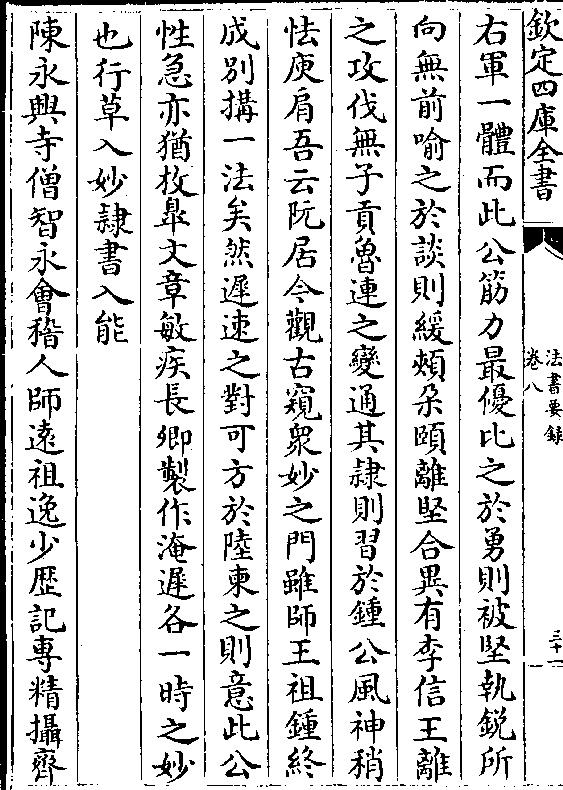 欽定四庫全書
法書要錄
卷八
三十一
右軍一體而此公筋力最優比之於勇則被堅執銳所
向無前喻之於談則緩頰朶頤離堅合異有李信王離
之攻伐無子貢魯連之變通其隸則習於鍾公風神稍
怯庾肩吾云阮居今觀古窺衆妙之門雖師王祖鍾終
成别搆一法矣然遲速之對可方於陸柬之則意此公
性急亦猶枚臯文章敏疾長卿製作淹遲各一時之妙
也行草入妙隸書入能
陳永興寺僧智永會稽人師遠祖逸少歴記專精攝齊